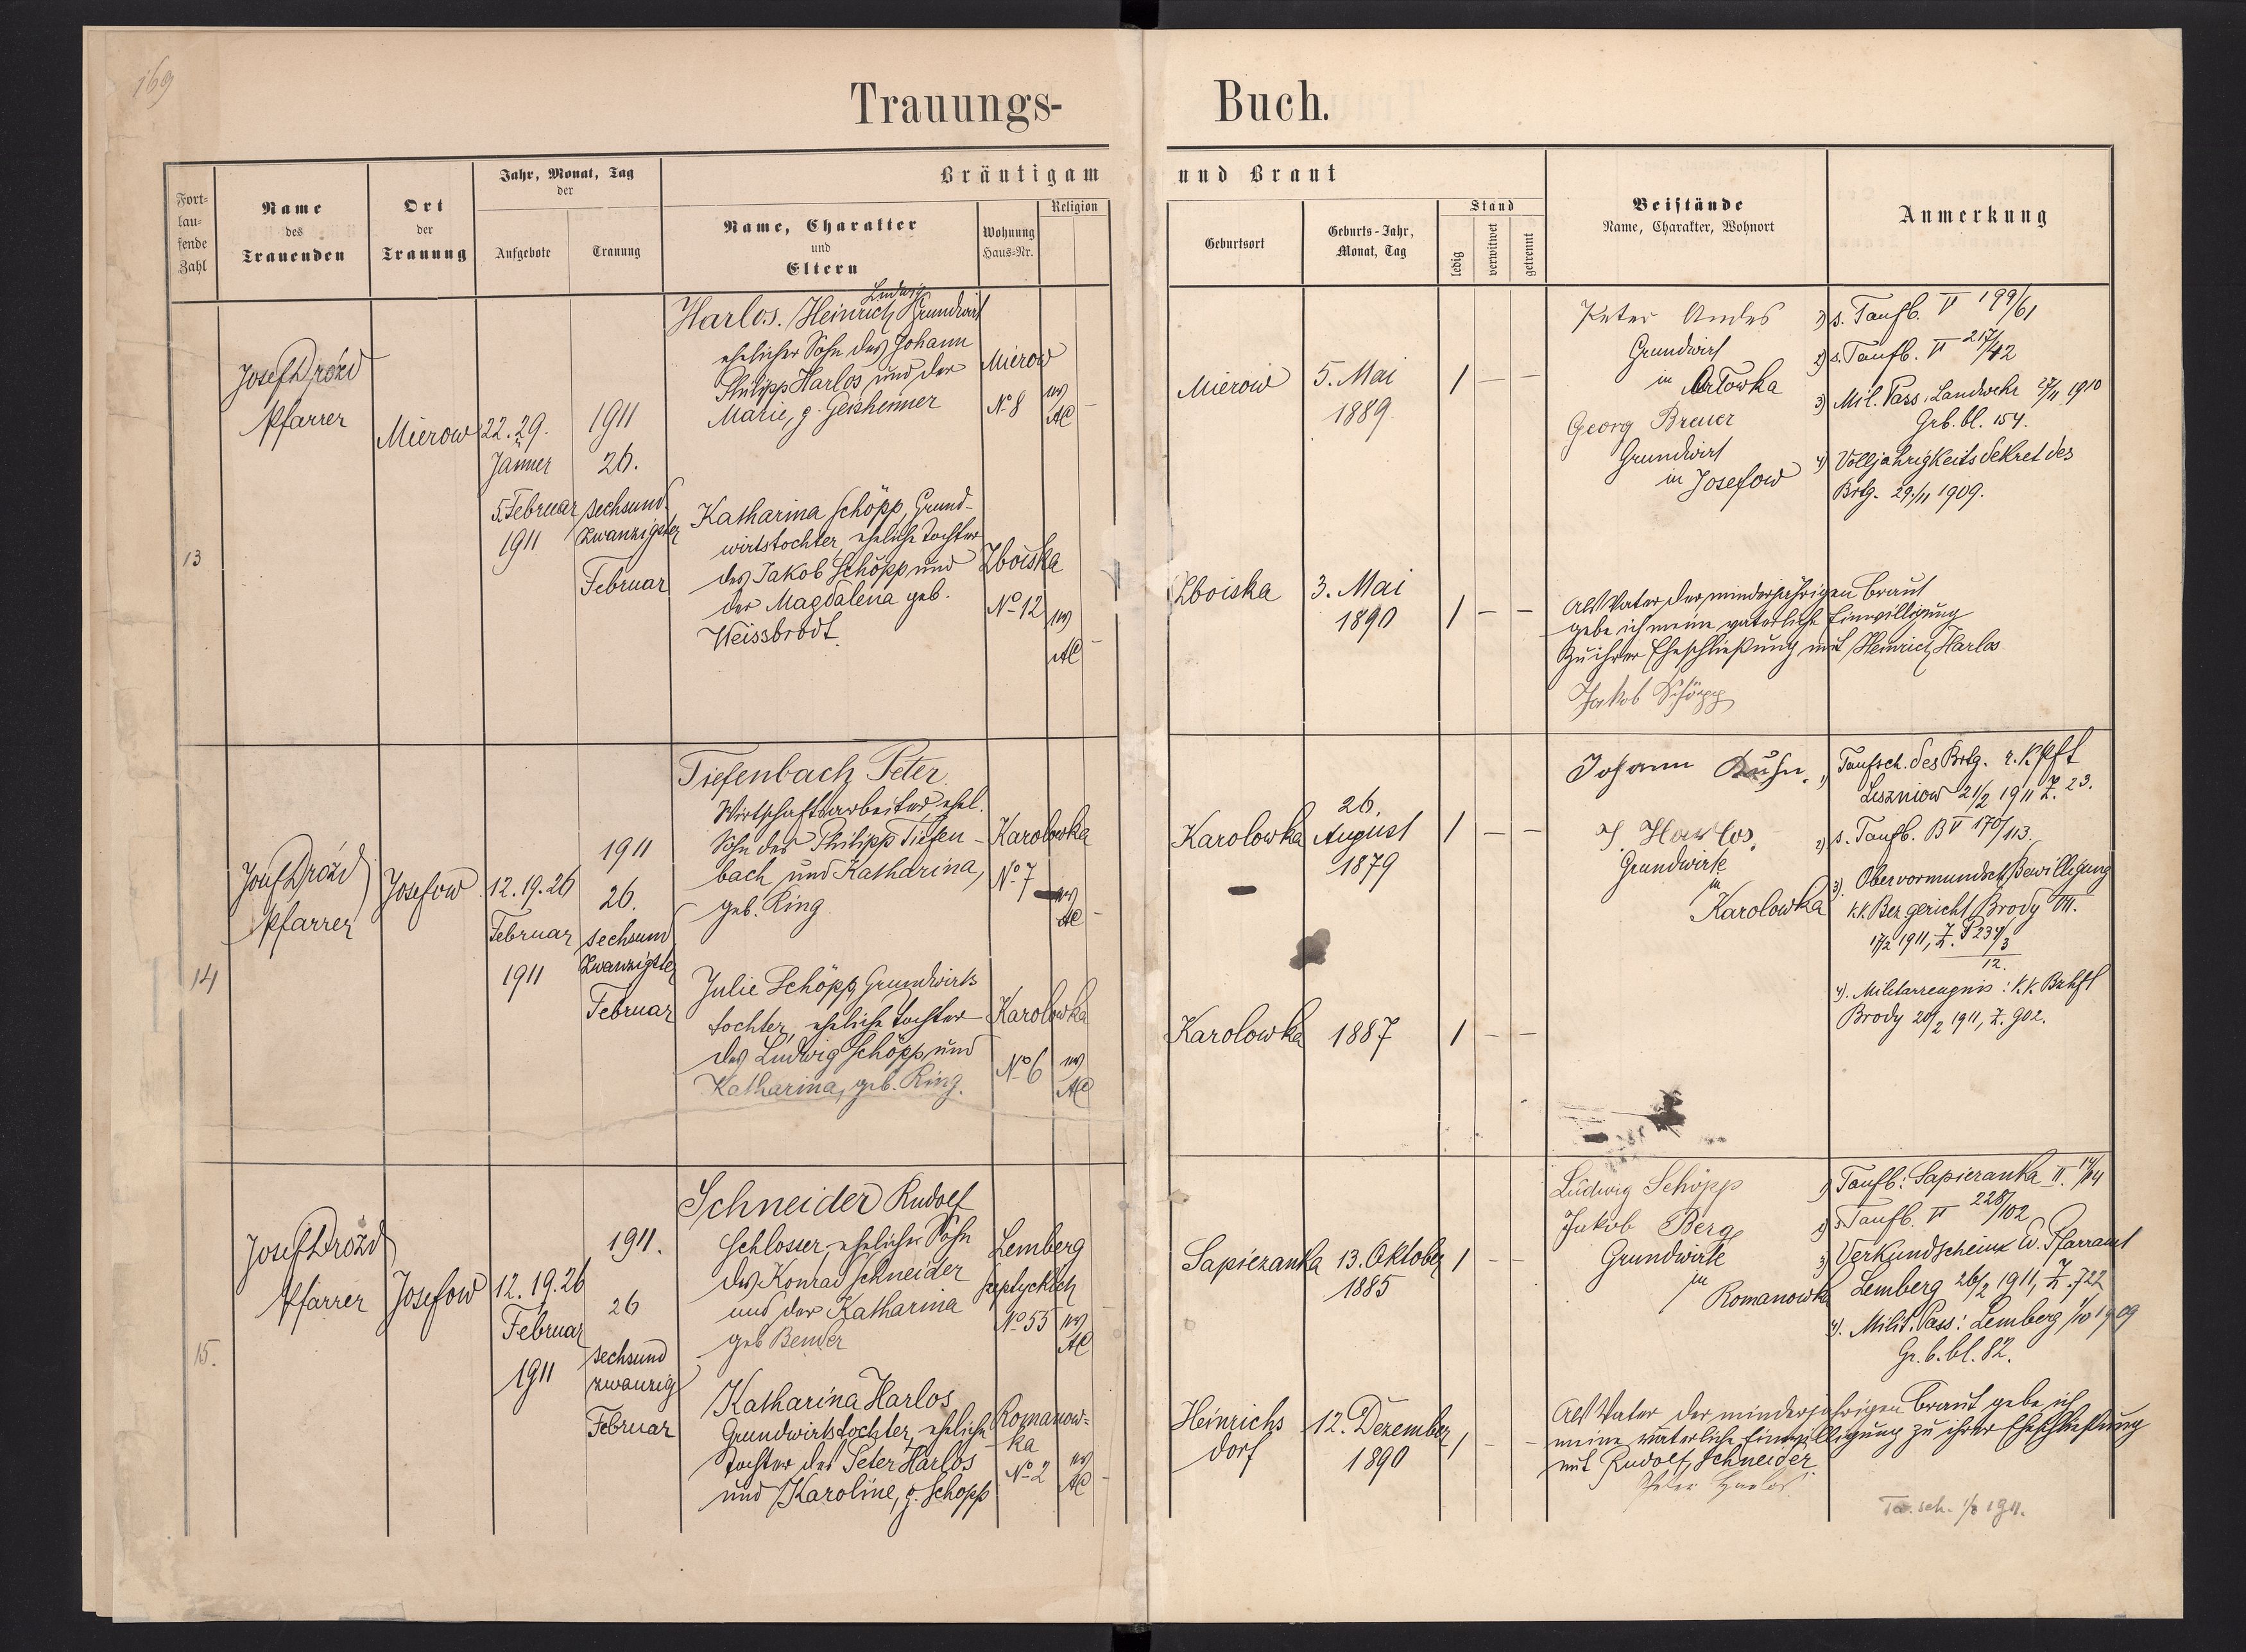 169
Trauungs-Buch.
Fort-
lau-
fende
Zahl
Name
des
Trauenden
Ort
der
Trauung
Jahr, Monat, Tag
der
Aufgebote
Trauung
Bräutigam und Braut
Name, Charakter
und
Eltern
Wohnung
Haus-Nr.
Religion
Geburtsort
Geburts-Jahr,
Monat, Tag
Stand
ledig
verwitwet
getrennt
Beistände
Name, Charakter, Wohnort
Anmerkung
13
Josef Drózd
Pfarrer
Mierow
22. 29.
Jänner
5. Februar
1911
1911
26.
sechsund
zwanzigster
Februar
Ludwig
Harlos. Heinrich Grundwirt
ehelicher Sohn des Johann
Philipp Harlos und der
Marie, g. Geisheimer
Mierow
No 8
ev
AC
Mierow
5. Mai
1889
1 — —
Katharina Schöpp, Grund-
wirtstochter, eheliche Tochter
des Jakob Schöpp und
der Magdalena geb.
Weissbrodt.
Zboiska
No 12
ev
AC
Zboiska
3. Mai
1890
1 — —
Peter Andes
Grundwirt
in Antowka
Georg Breuer
Grundwirt
in Josefow
1) s. Taufb. V 199/61
2) s. Taufb. V 217/42
3) Mil. Pass, Landwehr 27/11 1910
Grb. bl. 154.
4) Volljahrigkeitsdekret des
Brtg. 29/11 1909.
Als Vater der minderjährigen Braut
gebe ich meine väterliche Einwilligung
zu ihrer Eheschließung mit Heinrich Harlos
Jakob Schöpp
14
Josef Drózd
Pfarrer
Josefow
12. 19. 26
Februar
1911
1911
26.
sechsund
zwanzigster
Februar
Tiefenbach Peter
Wirtschaftsarbeiter, ehel.
Sohn des Philipp Tiefen-
bach und Katharina,
geb. Ring.
Karolowka
No 7
ev
AC
Karolowka
26.
August
1879
1 — —
Julie Schöpp, Grundwirts
tochter, eheliche Tochter
des Ludwig Schöpp und
Katharina, geb. Ring.
Karolowka
No 6
ev
AC
Karolowka
1887
1 — —
Johann Kuhn.
J. Harlos.
Grundwirte
in
Karolowka
1) Taufsch. des Brtg. r. k. Pft
Leszniow 21/2 1911 Z. 23.
2) s. Taufb. B V 170/113.
3). Obervormundsch Bewilligung
k.k. Bez gericht Brody VII.
17/2 1911, Z. P 234/3
12.
4). Militarzeugnis: k.k. Bzhft
Brody 20/2 1911, Z. 902.
15.
Josef Drózd
Pfarrer
Josefow
12. 19. 26
Februar
1911
1911.
26
sechsund
zwanzig
Februar
Schneider Rudolf
Schlosser, ehelicher Sohn
des Konrad Schneider
und der Katharina
geb Bender
Lemberg
No 55
ev
AC
Sapiezanka
13. Oktober
1885
1 — —
Katharina Harlos
Grundwirtstochter, eheliche
Tochter des Peter Harlos
und Karoline, g. Schopp
Romanow-
ka
No 2
ev
AC
Heinrichs
dorf
12. Dezember
1890
1 — —
Ludwig Schöpp
Jakob Berg
Grundwirte
in
Romanowka
1) Taufb: Sapiezanka II.
2) s. Taufb. V 228/102
3) Verkundschein Ev. Pfarramt
Lemberg 26/2 1911, Z. 722
4). Milit. Pass: Lemberg 1/10 1909
Gr. b. bl. 82.
Als Vater der minderjährigen Braut gebe ich
meine väterliche Einwilligung zu ihrer Eheschließung
mit Rudolf Schneider.
Peter Harlos